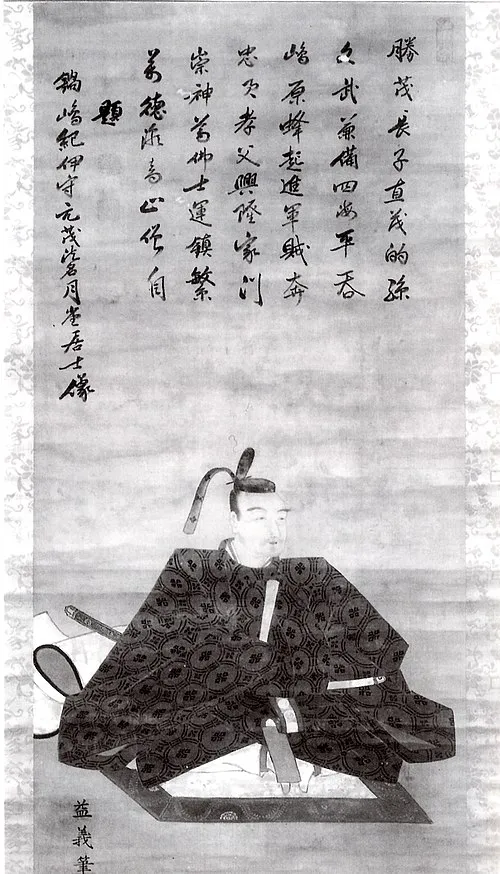 勝茂長子直茂的孫
武兼備四海平吞
嶋原蜂起進軍賊奔
忠君孝父興隆家門
崇神佛士運鎮繁
萬德高山僧自
題
鍋嶋紀伊守元茂月堂居士像
益義筆